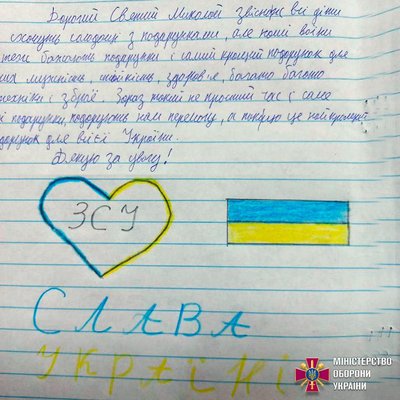 Дорогий Святий Миколай звісно всі діти
хочуть солодощі з подарунками, але наші воїни
теж бажають подарунки і самий кращий подарунок для
них мужність, стійкість, здоров'я, багато багато
техніки і зброї. Зараз такий не простий час і саме
ці подарунки, подарують нам перемогу, а це найкращий
подарунок для всієї України.
Дякую за увагу!
ЗСУ
СЛАВА
УКРАЇНІ
МІНІСТЕРСТВО
ОБОРОНИ
УКРАЇНИ